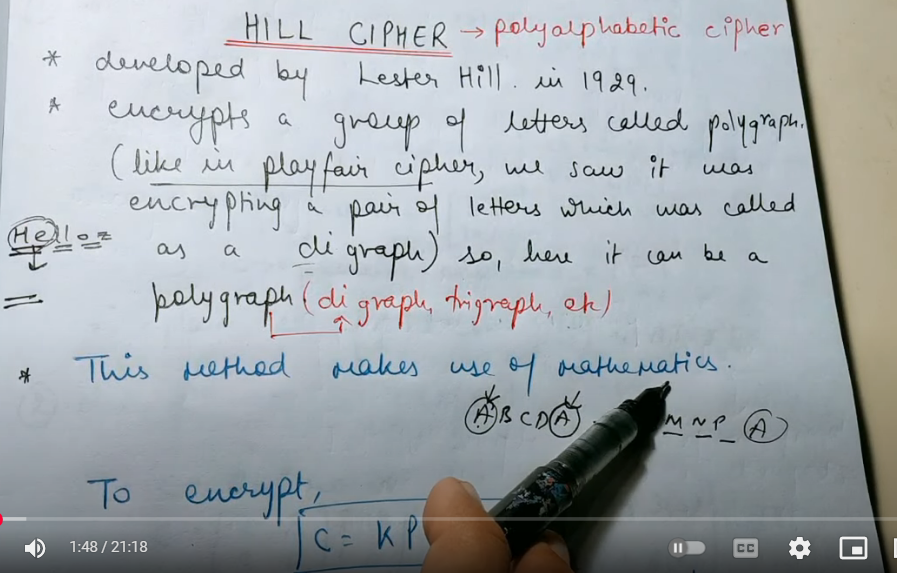 HILL CIPHER → polyalphabetic cipher
* developed by Lester Hill. in 1929.
* encrypts a group of letters called polygraph.
(like in playfair cipher, we saw it was
encrypting a pair of letters which was called
Helloz as a di graph) so, here it can be a
polygraph (di graph, trigraph, etc)
* This method makes use of mathematics.
A B C D A M N P A
To encrypt,
C = K P
1:48 / 21:18
CC